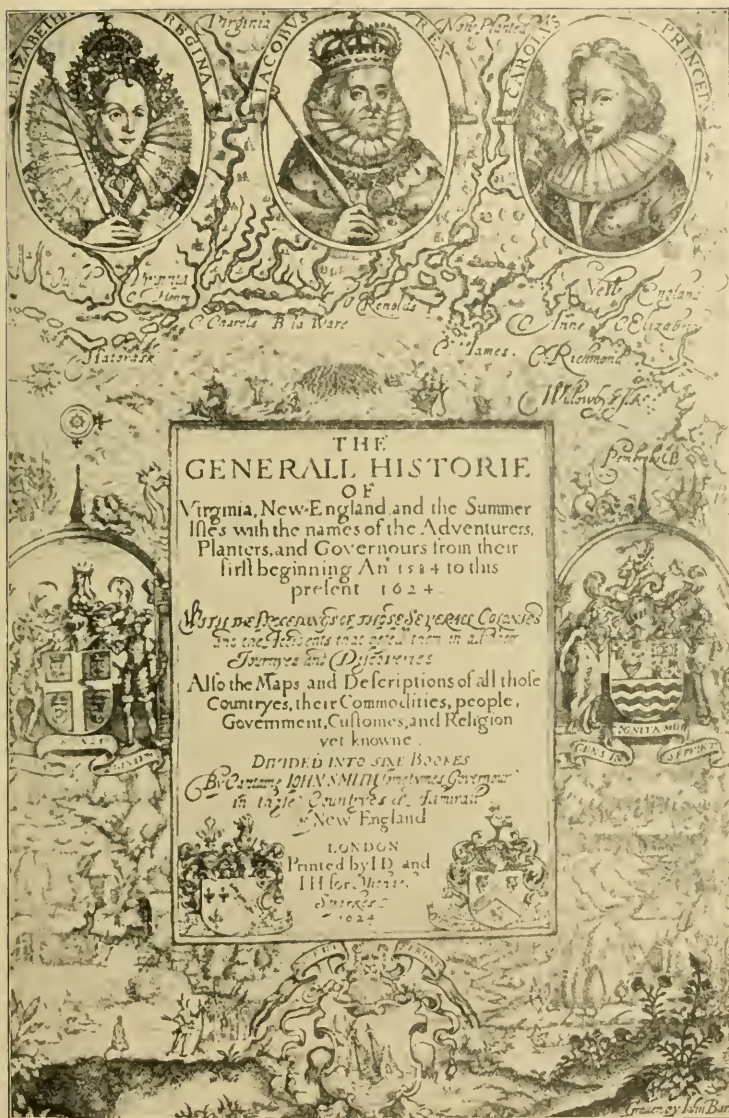 ELIZABETHA REGINA
IACOBUS REX
CAROLUS PRINCEPS
Virginia
Now Planted
Virginia
C. Henry
C Charels
B la Ware
C. James.
C. Richmond
C Anne
C. Elizabeth
New England
Willowby's Iles
Hatorask
THE
GENERALL HISTORIE
OF
Virginia, New-England, and the Summer
Isles with the names of the Adventurers,
Planters, and Governours from their
first beginning An° 1584 to this
present 1624.
WITH THE PROCEDINGS OF THOSE SEVERALL COLONIES
and the Accidents that befell them in all their
Journyes and Discoveries
Also the Maps and Descriptions of all those
Countryes, their Commodities, people,
Government, Customes, and Religion
yet knowne.
DIVIDED INTO SIXE BOOKES
By Captaine IOHN SMITH sometymes Governour
in those Countryes & Admirall
of New England
LONDON
Printed by I D and
I H for Michael
Sparkes
1624
GENS IN
COGNITA MIHI
SERVIET